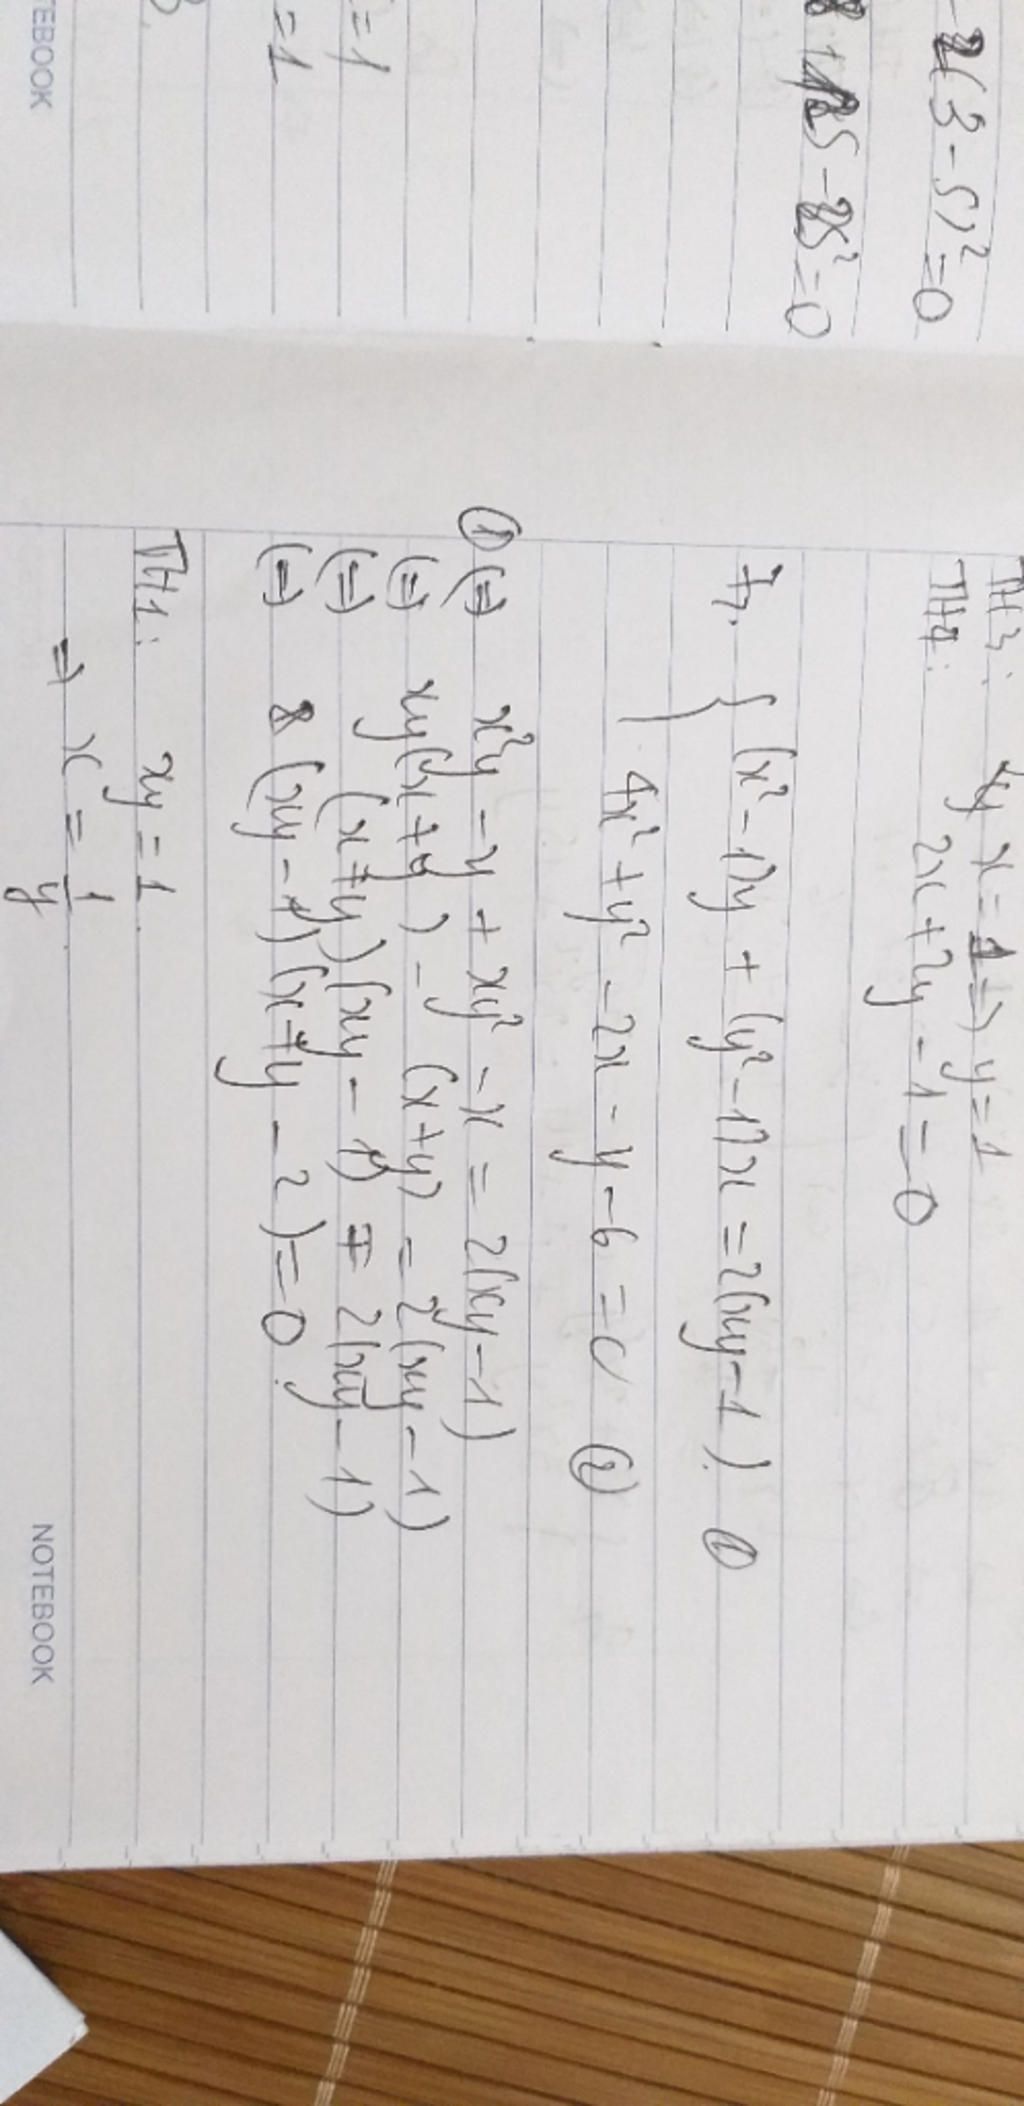 -2(3-5)² = 0
8+125-25² = 0
= 1
= 1
TEBOOK
TH3: x = 1 => y = 1
TH4: 2x + 2y - 1 = 0
7, { (x² - 1)y + (y² - 1)x = 2(xy - 1) ①
4x² + y² - 2x - y - 6 = 0 ②
① (=) x²y - y + xy² - x = 2(xy - 1)
(=) xy(x + y) - (x + y) = 2(xy - 1)
(=) (x + y)(xy - 1) = 2(xy - 1)
(=) (xy - 1)(x + y - 2) = 0
TH1: xy = 1
=> x = 1/y
NOTEBOOK